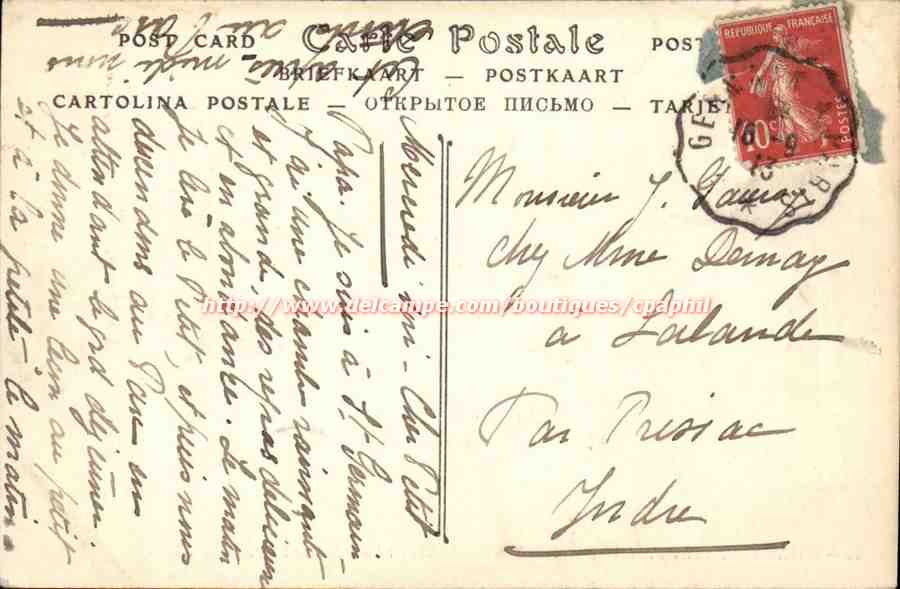 POST CARD — Carte Postale — POS
BRIEFKAART — POSTKAART
CARTOLINA POSTALE — ОТКРЫТОЕ ПИСЬМО — TARJE
REPUBLIQUE FRANÇAISE
10c
POSTES
http://www.delcampe.com/boutiques/cpaphil
Monsieur J.
chez Mme Demay
à Lalande
Par Prissac
Indre
Mercredi midi - Cher Petit
Papa. Je suis à St Germain -
J'ai une chambre ravissante
et grande, des repas délicieux
et en abondance. Le matin
je lave le Petit, et puis nous
descendons au Parc en
attendant le grd déjeuner
Je donne une leçon au petit
et à la petite le matin.